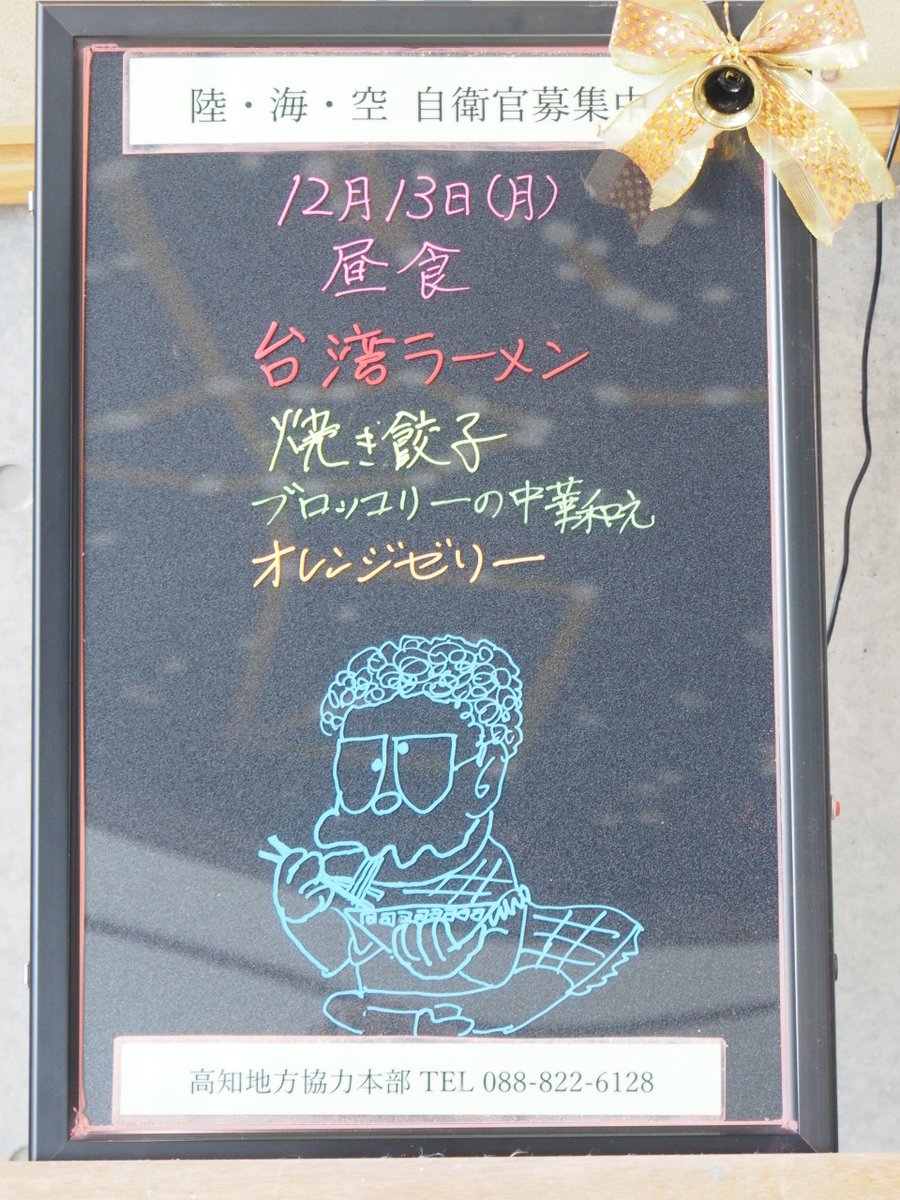 陸・海・空 自衛官募集中
12月13日(月)
昼食
台湾ラーメン
焼き餃子
ブロッコリーの中華和え
オレンジゼリー
高知地方協力本部 TEL 088-822-6128